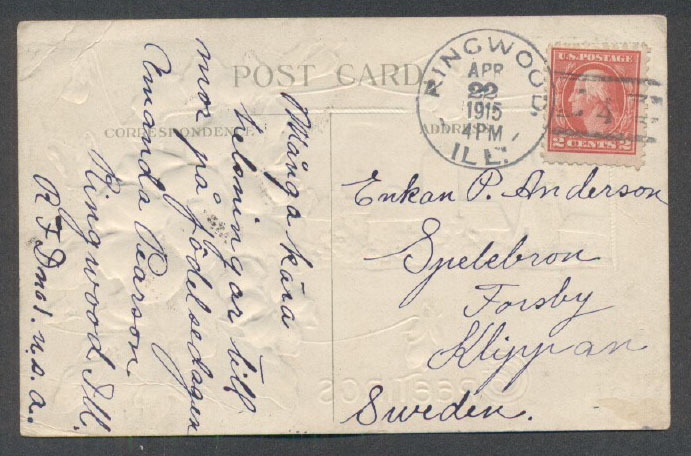 POST CARD
CORRESPONDENCE
ADDRESS
RINGWOOD,
APR
22
1915
4 PM
ILL.
U.S. POSTAGE
2 CENTS 2
Många kära
helsningar till
mor på födelsedagen
Amanda Pearson
Ringwood Ill.
R F D no 1. u.s.a.
Enkan P. Anderson
Spelebron
Forsby
Klippan
Sweden.
Greetings